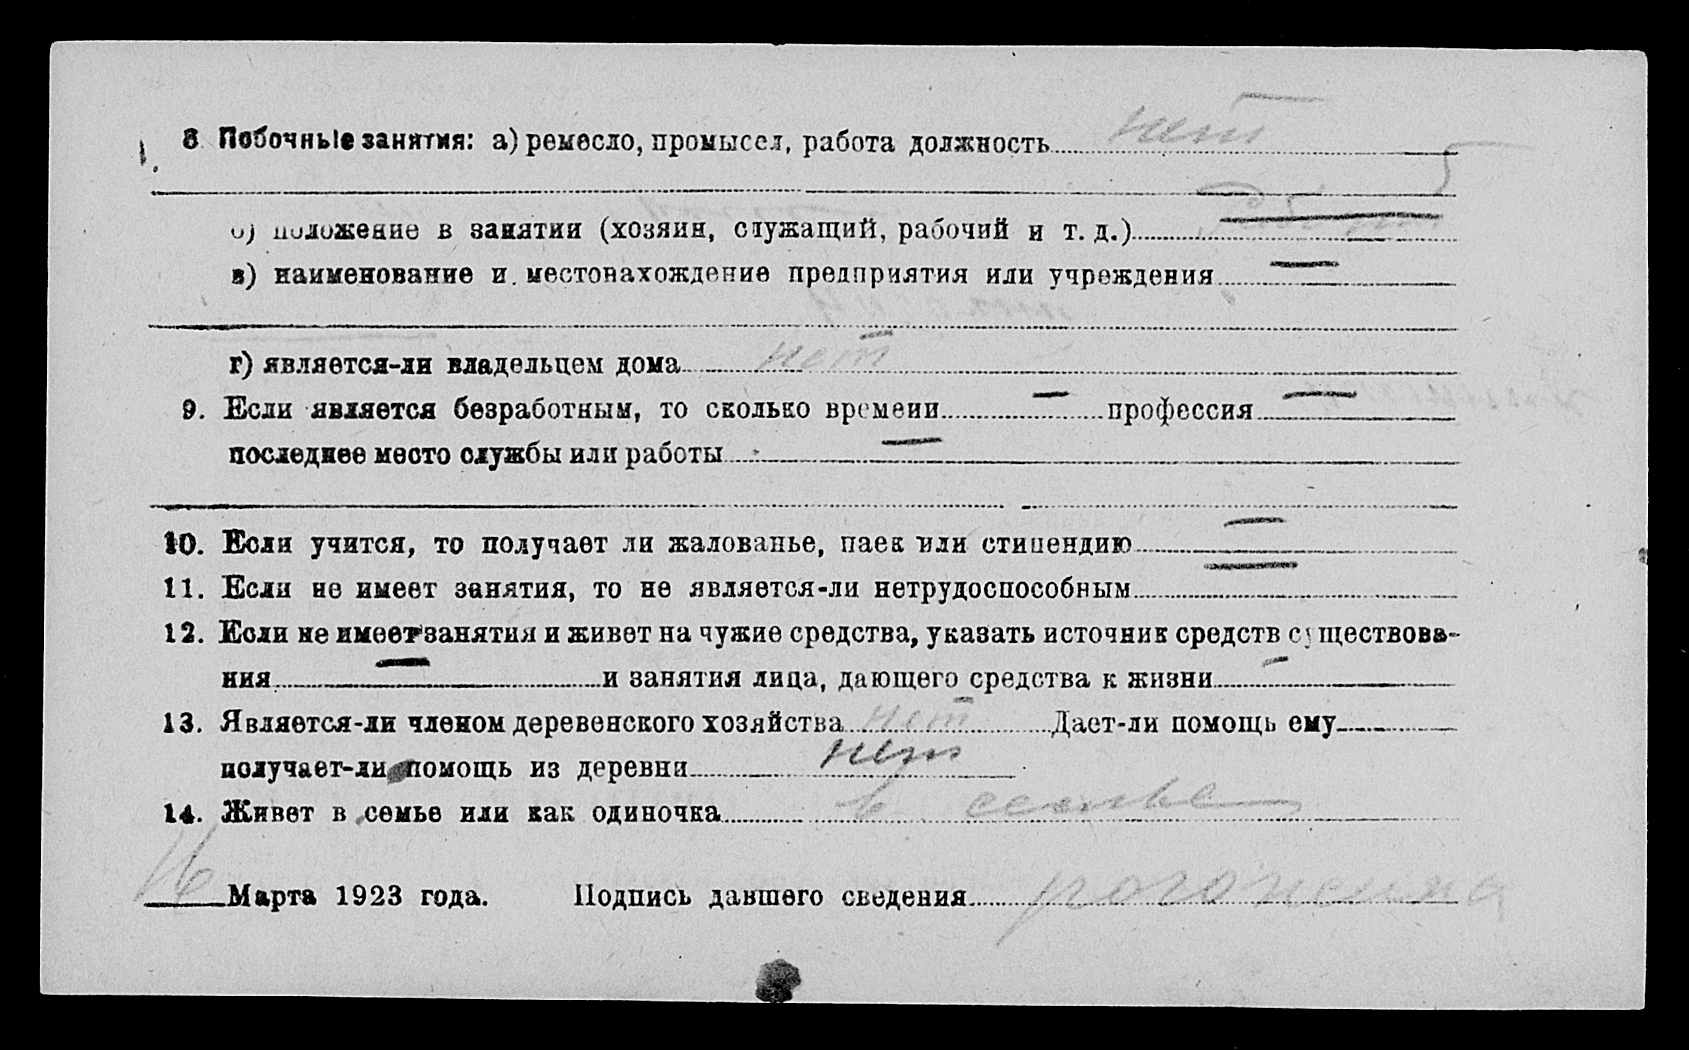 8 Побочные занятия: а) ремесло, промысел, работа должность нет
б) положение в занятии (хозяин, служащий, рабочий и т. д.)
в) наименование и местонахождение предприятия или учреждения —
г) является-ли владельцем дома нет
9. Если является безработным, то сколько времени — профессия —
последнее место службы или работы —
10. Если учится, то получает ли жалованье, паек или стипендию —
11. Если не имеет занятия, то не является-ли нетрудоспособным —
12. Если не имеет занятия и живет на чужие средства, указать источник средств существова-
ния — и занятия лица, дающего средства к жизни —
13. Является-ли членом деревенского хозяйства нет Дает-ли помощь ему
получает-ли помощь из деревни нет
14. Живет в семье или как одиночка в семье
16 Марта 1923 года. Подпись давшего сведения